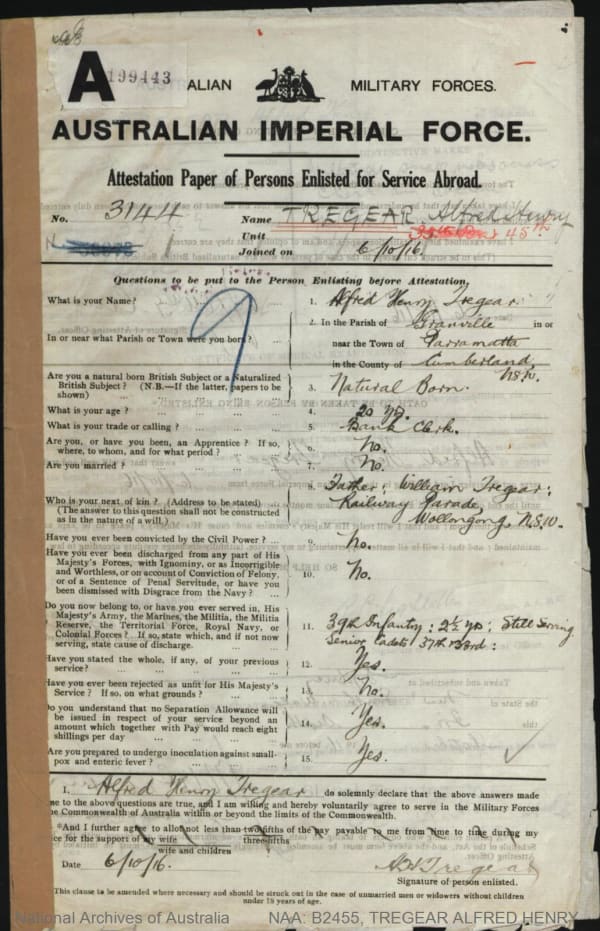 A 199443 ALIAN MILITARY FORCES.
AUSTRALIAN IMPERIAL FORCE.
Attestation Paper of Persons Enlisted for Service Abroad.
No. 3144 Name TREGEAR Alfred Henry
Unit 45th
Joined on 6/10/16
Questions to be put to the Person Enlisting before Attestation.
What is your Name? 1. Alfred Henry Tregear
In or near what Parish or Town were you born? 2. In the Parish of Granville in or
near the Town of Parramatta
in the County of Cumberland, N.S.W.
Are you a natural born British Subject or a Naturalized
British Subject? (N.B.—If the latter, papers to be
shown) 3. Natural Born.
What is your age? 4. 20 yrs.
What is your trade or calling? 5. Bank Clerk.
Are you, or have you been, an Apprentice? If so,
where, to whom, and for what period? 6. No.
Are you married? 7. No.
Who is your next of kin? (Address to be stated) 8. Father: William Tregear:
(The answer to this question shall not be constructed Railway Parade,
as in the nature of a will.) Wollongong, N.S.W.
Have you ever been convicted by the Civil Power? 9. No.
Have you ever been discharged from any part of His
Majesty's Forces, with Ignominy, or as Incorrigible
and Worthless, or on account of Conviction of Felony,
or of a Sentence of Penal Servitude, or have you
been dismissed with Disgrace from the Navy? 10. No.
Do you now belong to, or have you ever served in, His
Majesty's Army, the Marines, the Militia, the Militia
Reserve, the Territorial Force, Royal Navy, or
Colonial Forces? If so, state which, and if not now
serving, state cause of discharge. 11. 39th Infantry: 2½ yrs: Still Serving
Senior Cadets 37th
Have you stated the whole, if any, of your previous
service? 12. Yes.
Have you ever been rejected as unfit for His Majesty's
Service? If so, on what grounds? 13. No.
Do you understand that no Separation Allowance will
be issued in respect of your service beyond an
amount which together with Pay would reach eight
shillings per day 14. Yes.
Are you prepared to undergo inoculation against small-
pox and enteric fever? 15. Yes.
I, Alfred Henry Tregear do solemnly declare that the above answers made
me to the above questions are true, and I am willing and hereby voluntarily agree to serve in the Military Forces
he Commonwealth of Australia within or beyond the limits of the Commonwealth.
*And I further agree to allot not less than two-fifths of the pay payable to me from time to time during my
three-fifths
ice for the support of my wife
wife and children
Date 6/10/16. A H Tregear
Signature of person enlisted.
This clause to be amended where necessary and should be struck out in the case of unmarried men or widowers without children
under 18 years of age.
National Archives of Australia NAA: B2455, TREGEAR ALFRED HENRY